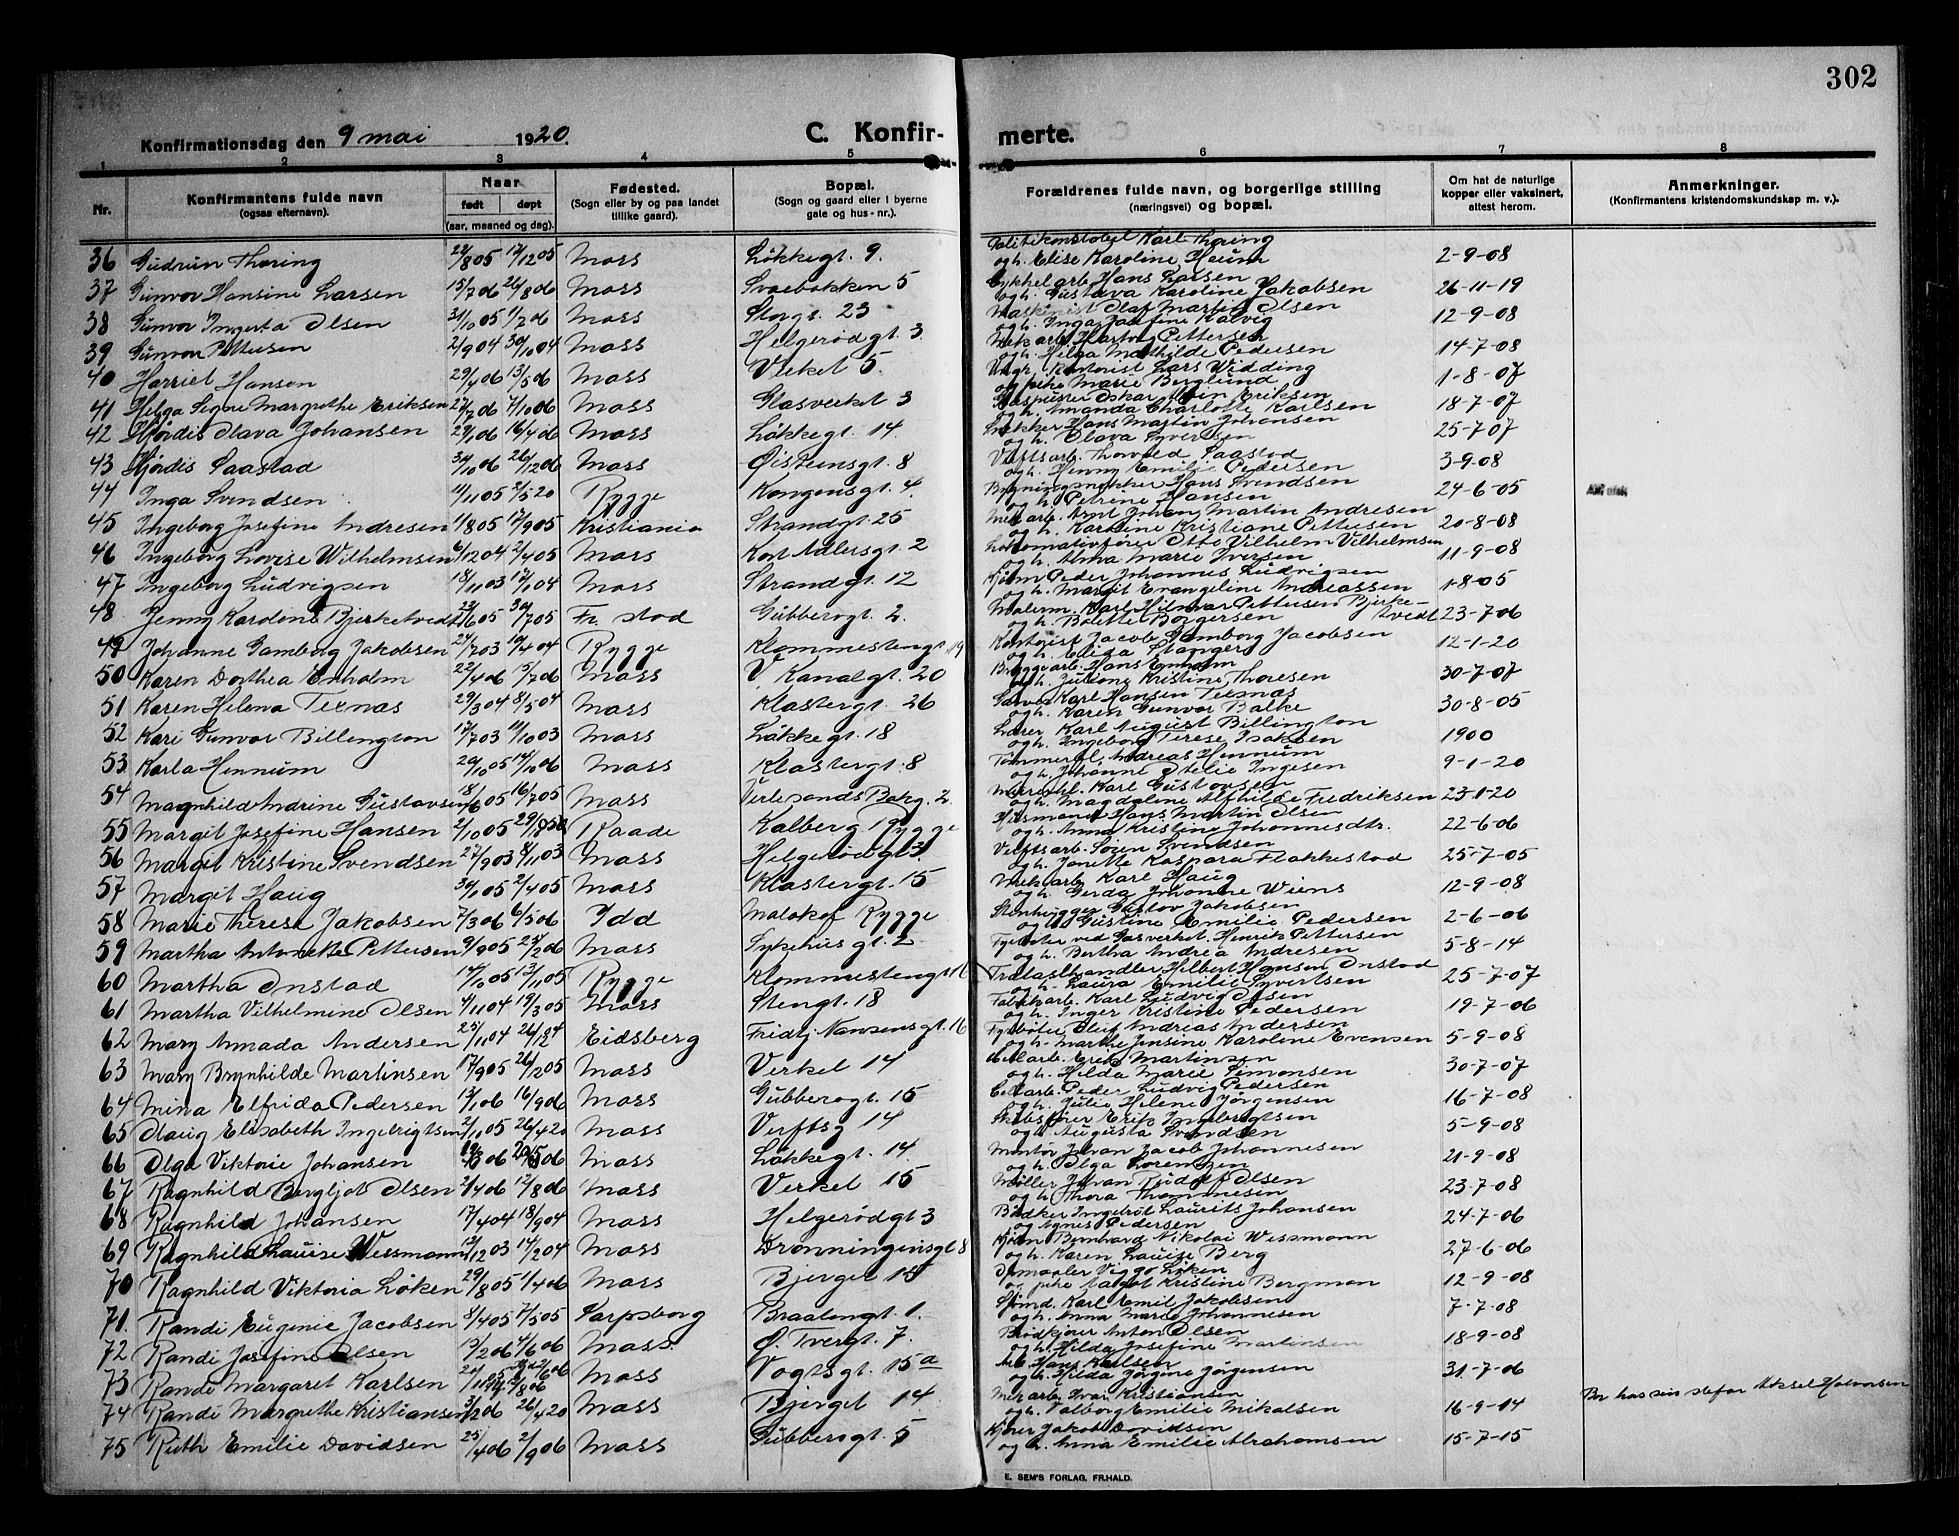 302
Konfirmationsdag den 9 mai 1920. C. Konfir- merte.
1 2 3 4 5 6 7 8
Nr. Konfirmantens fulde navn (ogsaa efternavn). Naar født døpt (aar, maaned og dag). Fødested. (Sogn eller by og paa landet tillike gaard). Bopæl. (Sogn og gaard eller i byerne gate og hus-nr.). Forældrenes fulde navn, og borgerlige stilling (næringsvei) og bopæl. Om hat de naturlige kopper eller vaksinert, attest herom. Anmerkninger. (Konfirmantens kristendomskundskap m. v.).
36 Gudrun Thoring 22/8 05 17/12 05 Moss Løkkegt. 9. Politikonstabel Karl Thoring og h. Elise Karoline Haum 2-9-08
37 Gunvor Hansine Larsen 15/7 06 26/8 06 Moss Svaebakken 5 Cykkelarb. Hans Larsen og h. Gustava Karoline Jakobsen 26-11-19
38 Gunvor Ingerta Olsen 31/10 05 1/7 06 Moss Storgt. 23 Maskinist Olaf Martin Olsen og h. Inga Josefine Kalvig 12-9-08
39 Gunvor Pettersen 2/9 04 30/10 04 Moss Helgerødgt. 3 Mek arb. Hartvig Pettersen og h. Helga Mathilde Pedersen 14-7-08
40 Harriet Hansen 29/4 06 13/5 06 Moss Verket 5. Ungr. Kontorist Lars Widding og pike Marie Berglund 1-8-07
41 Helga Signe Margrethe Eriksen 27/7 06 7/10 06 Moss Glasverket 3 Glaspuster Oskar Eriksen og h. Amanda Charlotte Karlsen 18-7-07
42 Hjørdis Olava Johansen 29/1 06 16/4 06 Moss Løkkegt. 14. Snekker Hans Martin Johansen og h. Olava Syvertsen 25-7-07
43 Hjørdis Saastad 30/10 06 26/12 06 Moss Øisteinsgt. 8 Verftsarb. Thorvald Saastad og h. Henny Emilie Pedersen 3-9-08
44 Inga Svendsen 11/11 05 2/5 20 Rygge Kongensgt. 4. Bygningssnekker Hans Svendsen og h. Petrine Hansen 24-6-05
45 Ingeborg Josefine Andresen 1/8 05 17/9 05 Kristiania Strandgt. 25 Mek arb. Arnt Johan Martin Andresen og h. Karoline Kristiane Pettersen 20-8-08
46 Ingeborg Lovise Wilhelmsen 6/12 04 2/4 05 Moss Kort Adlersgt. 2 Lokomotivfører Otto Vilhelm Vilhelmsen og h. Alma Marie Iversen 11-9-08
47 Ingeborg Ludvigsen 18/11 03 17/1 04 Moss Strandgt. 12 Kjøbm. Peder Johannes Ludvigsen og h. Margit Evangeline Andreassen 1-8-05
48 Jenny Karoline Bjerketvedt 23/6 05 30/7 05 Fr. stad Gubberogt. 2. Malerm. Karl Hilmar Pettersen Bjerketvedt og h. Bolette Borgersen 23-7-06
49 Johanne Gamborg Jakobsen 24/7 03 10/4 04 Rygge Klommestengt. 19 Kontorist Jacob Gamborg Jacobsen og h. Elida Stanger 12-1-20
50 Karen Dorthea Enholm 22/4 06 15/7 06 Moss V. Kanalgt. 20 Bryggearb. Hans Enholm og h. Juliane Kristine Thoresen 30-7-07
51 Karen Helena Texnas 29/3 04 8/5 04 Moss Klostergt. 26 Garver Karl Hansen Texnas og h. Karen Gunvor Balke 30-8-05
52 Kari Gunvor Billington 17/7 03 11/10 03 Moss Løkkegt. 18 Lærer Karl August Billington og h. Ingeborg Terese Isaksen 1900
53 Karla Hennum 20/10 05 14/10 06 Moss Klostergt. 8 Tømmerm. Andreas Hennum og h. Johanne Otelie Ingesen 9-1-20
54 Magnhild Andrine Gustavsen 18/6 05 16/7 05 Moss Verlesands Bakg. 2. Karl Gustavsen og h. Magdalene Alfhilde Fredriksen 23-1-20
55 Margit Josefine Hansen 2/10 05 Raade Kalberg Rygge Husmand Hans Martin Olsen og h. Anna Kristine Johannesdtr. 22-6-06
56 Margit Kristine Svendsen 27/9 03 8/11 03 Moss Helgerødgt. 3 Verftsarb. Søren Svendsen og h. Janette Kaspara Flakkestad 25-7-05
57 Margit Haug 30/1 05 2/4 05 Moss Klostergt. 15 Mek arb. Karl Haug og h. Gerda Johanne Wiens 12-9-08
58 Marie Therese Jakobsen 7/3 06 6/5 06 Idd Molakof Rygge Stenhugger Gustav Jakobsen og h. Gustine Emilie Pedersen 2-6-06
59 Martha Antonette Pettersen 9/9 05 25/2 06 Moss Sykehusgt. 2 Fyrbøter ved Gasverket. Henrik Pettersen og h. Bertha Andrea Andresen 5-8-14
60 Martha Onstad 14/10 05 12/11 05 Rygge Klommestengt. 16 Trælasthandler Helbert Hansen Onstad og h. Laura Emilie Syvertsen 25-7-07
61 Martha Vilhelmine Olsen 4/11 04 19/3 05 Moss Stengt. 18 Fabrikarb. Karl Ludvig Olsen og h. Inger Kristine Pedersen 19-7-06
62 Mary Amada Andersen 25/11 04 26/12 Eidsberg Fridtj. Nansensgt. 16 Fyrbøter Oluf Andreas Andersen og h. Marthe Jensine Karoline Evensen 5-9-08
63 Mary Brynhilde Martinsen 17/9 05 26/12 05 Moss Verket 14 Cellarb. Erik Martinsen og h. Hilda Marie Simonsen 30-7-07
64 Mina Elfrida Pedersen 13/1 06 16/9 06 Moss Gubberogt. 15 Cellarb. Peder Ludvig Pedersen og h. Julie Helene Jørgensen 16-7-08
65 Olaug Elisabeth Ingebrigtsen 2/11 05 26/4 20 Moss Verftsg 14 Skibsfører Erik Ingebrigtsen og h. Augusta Svendsen 5-9-08
66 Olga Viktorie Johansen 06 06 Moss Løkkegt. 14. Montør Johan Jacob Johannesen og h. Olga Lorentzen 21-9-08
67 Ragnhild Bergljot Olsen 2/4 06 12/8 06 Moss Verket 15 Møller Johan Rudolf Olsen og h. Thora Thommesen 23-7-08
68 Ragnhild Johansen 17/4 04 18/9 04 Moss Helgerødgt 3 Bødker Ingebrøt Laurits Johansen og Agnes Pedersen 24-7-06
69 Ragnhild Louise Wessmann 13/12 03 14/2 04 Moss Dronningensgt 8 Kjøbm Bernhard Nikolai Wessmann og h. Karen Louise Berg 27-6-06
70 Ragnhild Viktoria Løken 29/8 05 1/4 06 Moss Bjerget 15 Viggo Løken og pike Margot Kristine Bergman 12-9-08
71. Randi Eugenie Jacobsen 8/4 05 7/5 05 Sarpsborg Braatengt. 1. Sjømd. Karl Emil Jakobsen og h. Anna Marie Johannesen 7-7-08
72 Randi Josefine Olsen 13/2 06 4/6 06 Moss. Ø. Tvergt. 7. Brødkjører Anton Olsen og h. Hilda Josefine Martinsen 18-9-08
73 Randi Margaret Karlsen Moss Vogtsgt. 15a Arb. Hans Karlsen og h. Hilda Jørgine Jørgensen 31-7-06
74 Randi Margrethe Kristiansen 3/2 06 26/4 20 Moss Bjerget 14 Mek arb. Ivar Kristiansen og h. Valborg Emilie Mikalsen 16-9-14 Bor hos sin stefar Aksel Halvorsen
75 Ruth Emilie Davidsen 25/4 06 2/9 06 Moss Gubberogt. 5 Kjører Jakob Davidsen og h. Anna Emilie Abrahamsen 15-7-15
E. SEM'S FORLAG, FR.HALD.